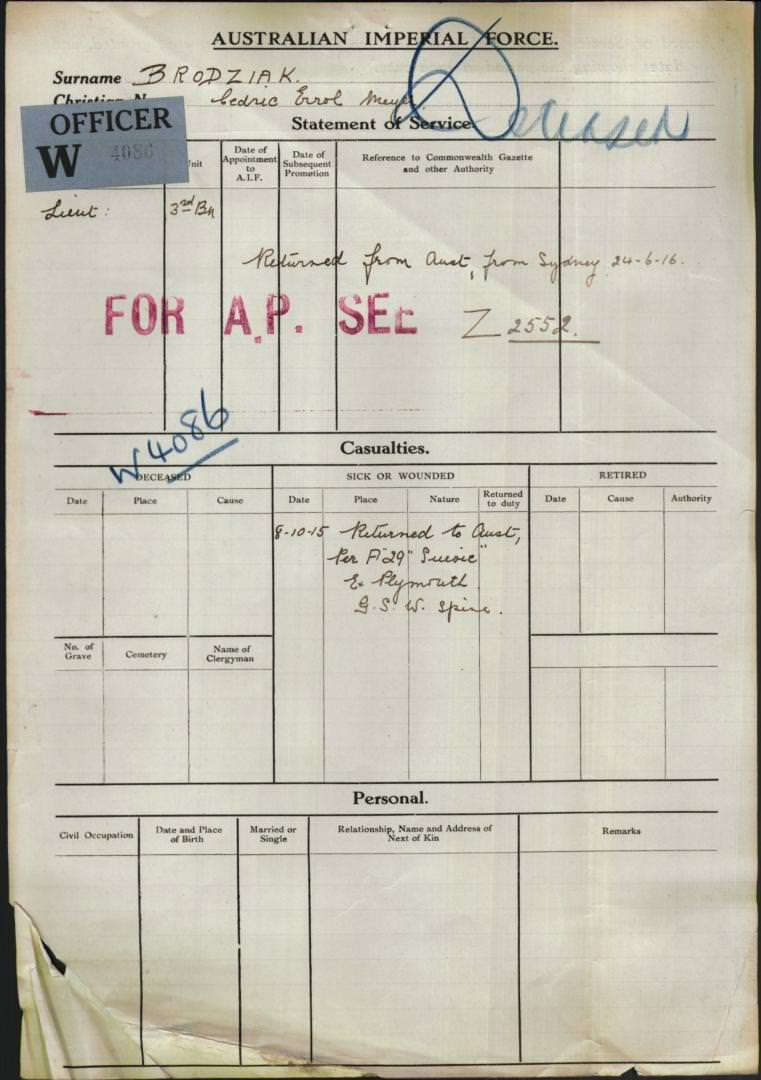 AUSTRALIAN IMPERIAL FORCE.
Surname BRODZIAK.
Christian N Cedric Errol Meyer
Deceased
OFFICER
W 4086
Statement of Service
Unit
Date of Appointment to A.I.F.
Date of Subsequent Promotion
Reference to Commonwealth Gazette and other Authority
Lieut: 3rd Bn
Returned from Aust, from Sydney 24-6-16.
FOR A.P. SEE Z 2552.
W4086
Casualties.
DECEASED SICK OR WOUNDED RETIRED
Date Place Cause Date Place Nature Returned to duty Date Cause Authority
8-10-15 Returned to Aust,
Per A 29 "Suevic"
Ex Plymouth
G.S.W. Spine.
No. of Grave Cemetery Name of Clergyman
Personal.
Civil Occupation
Date and Place of Birth
Married or Single
Relationship, Name and Address of Next of Kin
Remarks